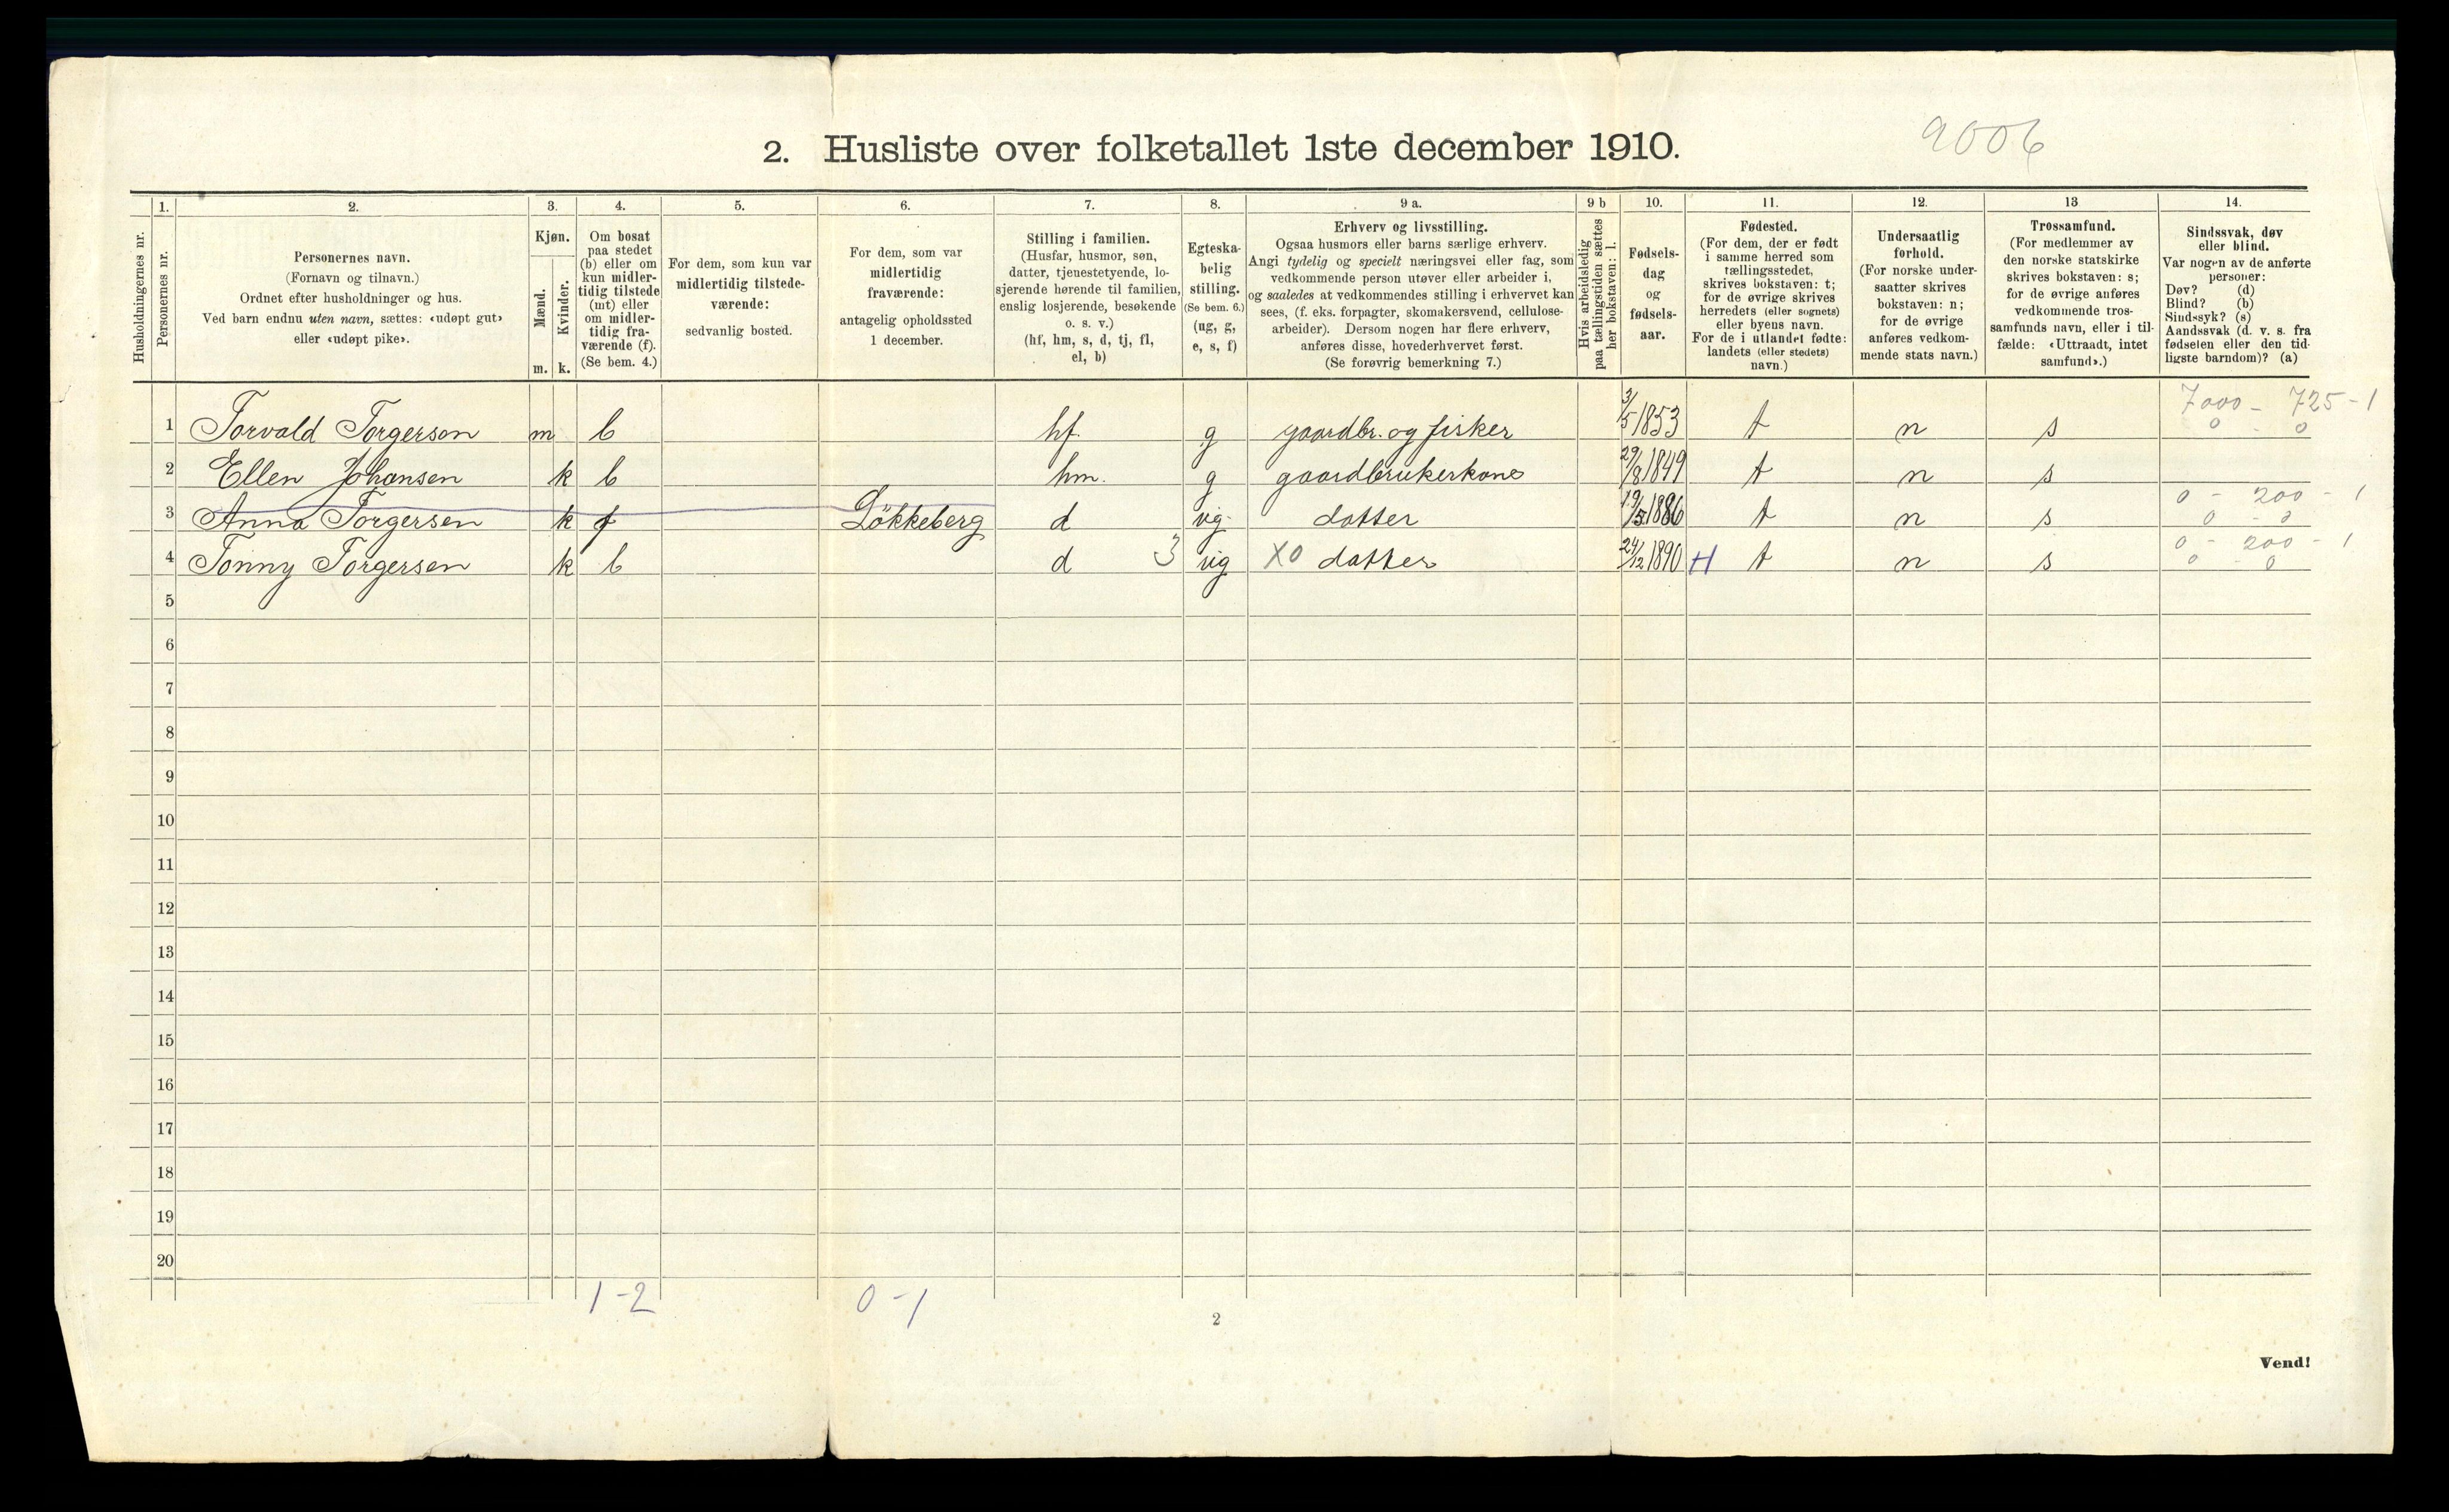 9006
2. Husliste over folketallet 1ste december 1910.
Husholdningernes nr.
1.
Personernes nr.
2.
Personernes navn.
(Fornavn og tilnavn.)
Ordnet efter husholdninger og hus.
Ved barn endnu uten navn, sættes: «udøpt gut»
eller «udøpt pike».
3.
Kjøn.
Mænd.
Kvinder.
m. k.
4.
Om bosat
paa stedet
(b) eller om
kun midler-
tidig tilstede
(mt) eller
om midler-
tidig fra-
værende (f).
(Se bem. 4.)
5.
For dem, som kun var
midlertidig tilstede-
værende:
sedvanlig bosted.
6.
For dem, som var
midlertidig
fraværende:
antagelig opholdssted
1 december.
7.
Stilling i familien.
(Husfar, husmor, søn,
datter, tjenestetyende, lo-
sjerende hørende til familien,
enslig losjerende, besøkende
o. s. v.)
(hf, hm, s, d, tj, fl,
el, b)
8.
Egteska-
belig
stilling.
(Se bem. 6.)
(ug, g,
e, s, f)
9 a.
Erhverv og livsstilling.
Ogsaa husmors eller barns særlige erhverv.
Angi tydelig og specielt næringsvei eller fag, som
vedkommende person utøver eller arbeider i,
og saaledes at vedkommendes stilling i erhvervet kan
sees, (f. eks. forpagter, skomakersvend, cellulose-
arbeider). Dersom nogen har flere erhverv,
anføres disse, hovederhvervet først.
(Se forøvrig bemerkning 7.)
9 b
Hvis arbeidsledig
paa tællingstiden sættes
her bokstaven: l.
10.
Fødsels-
dag
og
fødsels-
aar.
11.
Fødested.
(For dem, der er født
i samme herred som
tællingsstedet,
skrives bokstaven: t;
for de øvrige skrives
herredets (eller sognets)
eller byens navn.
For de i utlandet fødte:
landets (eller stedets)
navn.)
12.
Undersaatlig
forhold.
(For norske under-
saatter skrives
bokstaven: n;
for de øvrige
anføres vedkom-
mende stats navn.)
13
Trossamfund.
(For medlemmer av
den norske statskirke
skrives bokstaven: s;
for de øvrige anføres
vedkommende tros-
samfunds navn, eller i til-
fælde: «Uttraadt, intet
samfund».)
14.
Sindssvak, døv
eller blind.
Var nogen av de anførte
personer:
Døv? (d)
Blind? (b)
Sindssyk? (s)
Aandssvak (d. v. s. fra
fødselen eller den tid-
ligste barndom)? (a)
7000 - 725 - 1
0 - 0
1 Torvald Torgerson m b hf. g gaardbr. og fisker 3/5 1853 t n s
2 Ellen Johansen k b hm. g gaardbrukerkone 29/8 1849 t n s
0 - 200 - 1
0 - 0
3 Anna Torgersen k f Løkkeberg d ug. datter 19/5 1886 t n s
0 - 200 - 1
0 - 0
4 Tonny Torgersen k b d 3 ug X0 datter 24/12 1890 H t n s
5
6
7
8
9
10
11
12
13
14
15
16
17
18
19
20
1-2
0-1
2
Vend!